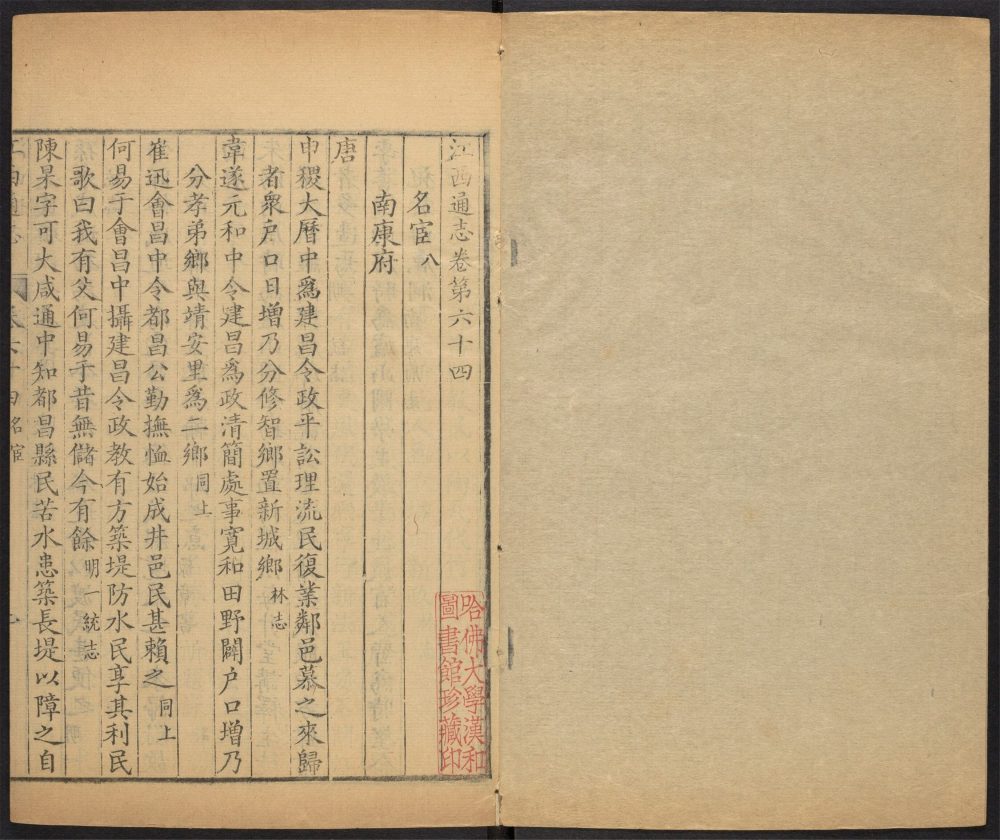 江西通志卷第六十四
名宦八
南康府
唐
申稷大曆中爲建昌令政平訟理流民復業鄰邑慕之來歸
者衆戶口日增乃分修智鄉置新城鄉林志
韋遂元和中令建昌爲政清簡處事寬和田野闢戶口增乃
分孝弟鄉與靖安里爲二鄉同上
崔迅會昌中令都昌公勤撫恤始成井邑民甚賴之同上
何易于會昌中攝建昌令政教有方築堤防水民享其利民
歌曰我有父何易于昔無儲今有餘明一統志
陳杲字可大咸通中知都昌縣民苦水患築長堤以障之自
哈佛大學漢和
圖書館珍藏印